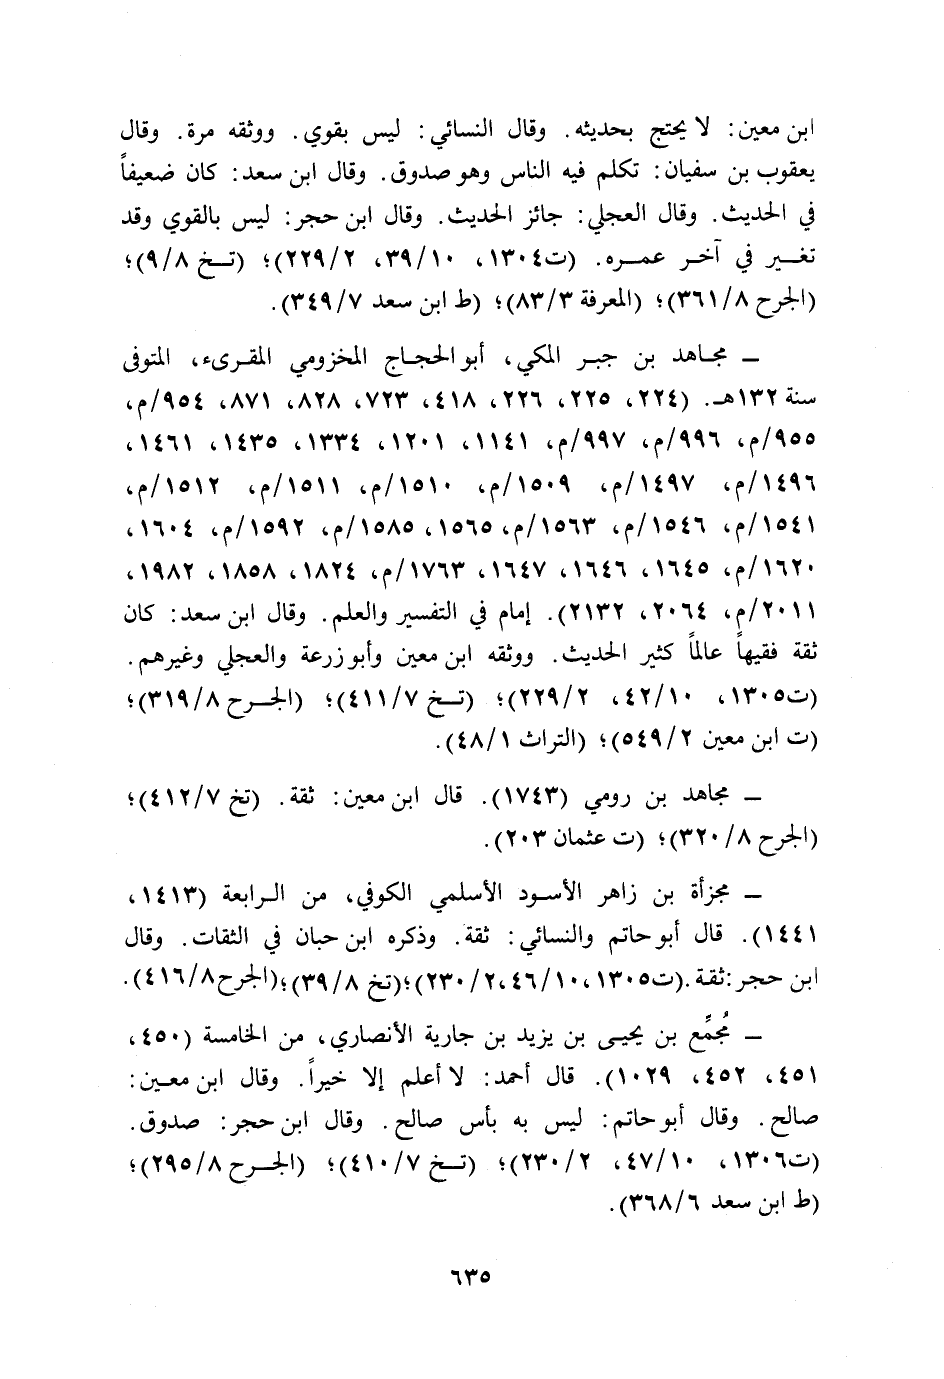 ابن معين: لا يحتج بحديثه. وقال النسائي: ليس بقوي. ووثقه مرة. وقال
يعقوب بن سفيان: تكلم فيه الناس وهو صدوق. وقال ابن سعد: كان ضعيفاً
في الحديث. وقال العجلي: جائز الحديث. وقال ابن حجر: ليس بالقوي وقد
تغير في آخر عمره. (ت١٣٠٤، ٣٩/١٠، ٢٢٩/٢)؛ (تخ ٩/٨)؛
(الجرح ٣٦١/٨)؛ (المعرفة ٨٣/٣)؛ (ط ابن سعد ٣٤٩/٧).
ــ مجاهد بن جبر المكي، أبو الحجاج المخزومي المقرىء، المتوفى
سنة ١٣٢هـ. (٢٢٤، ٢٢٥، ٢٢٦، ٤١٨، ٧٢٣، ٨٢٨، ٨٧١، ٩٥٤/م،
٩٥٥/م، ٩٩٦/م، ٩٩٧/م، ١١٤١، ١٢٠١، ١٣٣٤، ١٤٣٥، ١٤٦١،
١٤٩٦/م، ١٤٩٧/م، ١٥٠٩/م، ١٥١٠/م، ١٥١١/م، ١٥١٢/م،
١٥٤١/م، ١٥٤٦/م، ١٥٦٣/م، ١٥٦٥، ١٥٨٥/م، ١٥٩٢/م، ١٦٠٤،
١٦٢٠/م، ١٦٤٥، ١٦٤٦، ١٦٤٧، ١٧٦٣/م، ١٨٢٤، ١٨٥٨، ١٩٨٢،
٢٠١١/م، ٢٠٦٤، ٢١٣٢). إمام في التفسير والعلم. وقال ابن سعد: كان
ثقة فقيهاً عالماً كثير الحديث. ووثقه ابن معين وأبو زرعة والعجلي وغيرهم.
(ت١٣٠٥، ٤٢/١٠، ٢٢٩/٢)؛ (تخ ٤١١/٧)؛ (الجرح ٣١٩/٨)؛
(ت ابن معين ٥٤٩/٢)؛ (التراث ٤٨/١).
ــ مجاهد بن رومي (١٧٤٣). قال ابن معين: ثقة. (تخ ٤١٢/٧)؛
(الجرح ٣٢٠/٨)؛ (ت عثمان ٢٠٣).
ــ مجزأة بن زاهر الأسود الأسلمي الكوفي، من الرابعة (١٤١٣،
١٤٤١). قال أبو حاتم والنسائي: ثقة. وذكره ابن حبان في الثقات. وقال
ابن حجر: ثقة. (ت١٣٠٥، ٤٦/١٠، ٢٣٠/٢)؛ (تخ ٣٩/٨)؛ (الجرح ٤١٦/٨).
ــ مُجمِّع بن يحيى بن يزيد بن جارية الأنصاري، من الخامسة (٤٥٠،
٤٥١، ٤٥٢، ١٠٢٩). قال أحمد: لا أعلم إلا خيراً. وقال ابن معين:
صالح. وقال أبو حاتم: ليس به بأس صالح. وقال ابن حجر: صدوق.
(ت١٣٠٦، ٤٧/١٠، ٢٣٠/٢)؛ (تخ ٤١٠/٧)؛ (الجرح ٢٩٥/٨)؛
(ط ابن سعد ٣٦٨/٦).
٦٣٥